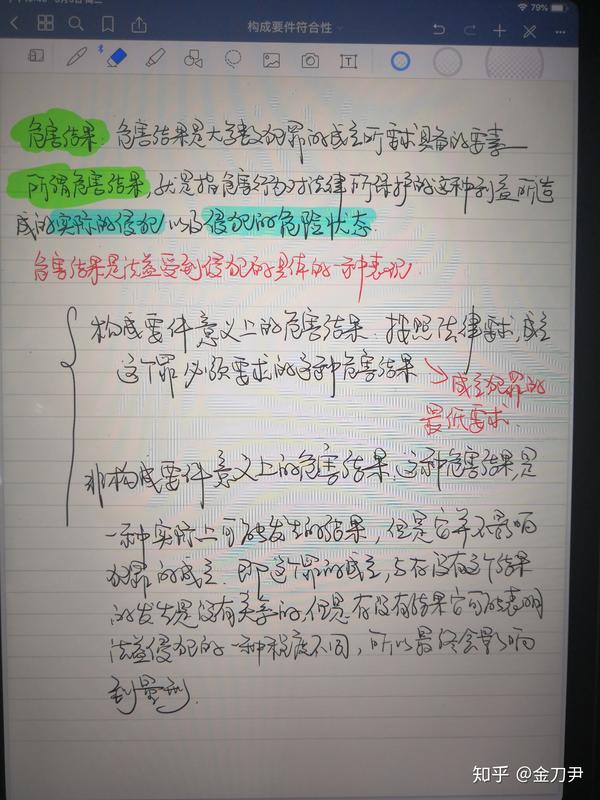 79%
构成要件符合性
危害结果：危害结果是大多数犯罪的成立所要求具备的要素
所谓危害结果，就是指危害行为对法律所保护的这种利益所造
成的实际的侵犯以及侵犯的危险状态.
危害结果是法益受到侵犯的具体的一种表现.
构成要件意义上的危害结果：按照法律要求，成立
这个罪必须要求的这种危害结果
→成立犯罪的
最低要求.
非构成要件意义上的危害结果，这种危害结果，是
一种实际上可能发生的结果，但是它并不影响
犯罪的成立.即这个罪的成立，与有没有这个结果
的发生是没有关系的，但是有没有结果它可能表明
法益侵犯的一种程度不同，所以最终会影响
到量刑.
知乎 @金刀尹